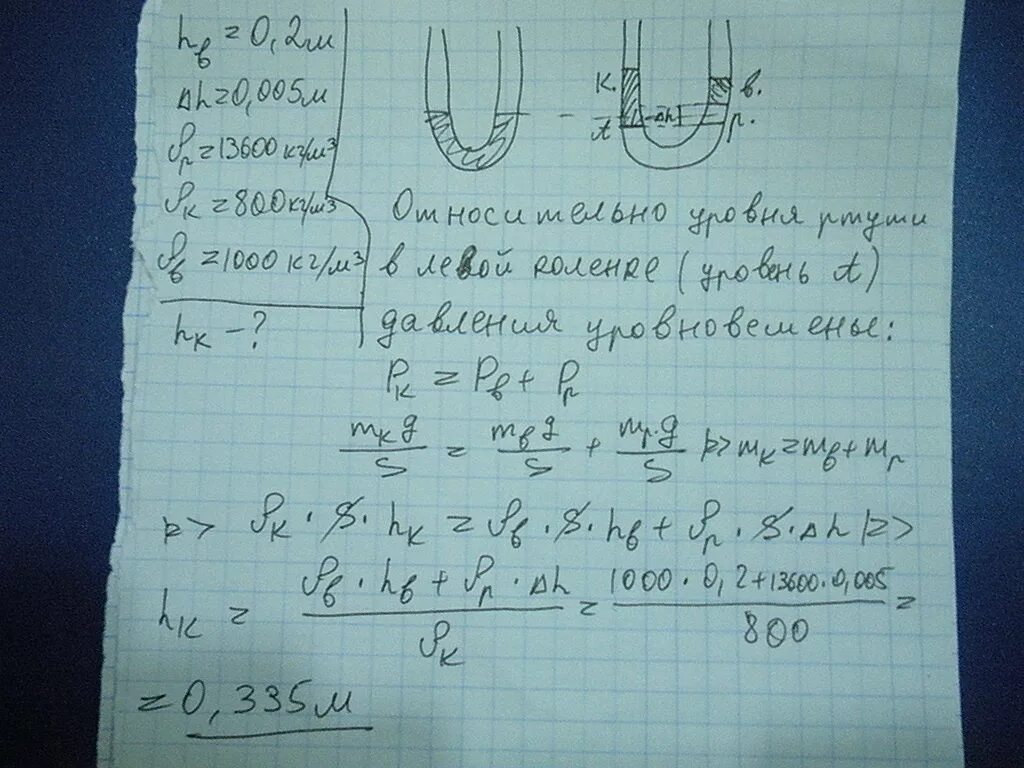 hв = 0,2м
Δh = 0,005м
ρр = 13600 кг/м³
ρк = 800 кг/м³
ρв = 1000 кг/м³
hк - ?
К. в.
А Δh р.
Относительно уровня ртути
в левой коленке (уровень А)
давления уровновешены:
Pк = Pв + Pр
mк g / S = mв g / S + mр g / S => mк = mв + mр
=> ρк · S · hк = ρв · S · hв + ρр · S · Δh =>
hк = (ρв · hв + ρр · Δh) / ρк = (1000 · 0,2 + 13600 · 0,005) / 800 =
= 0,335м